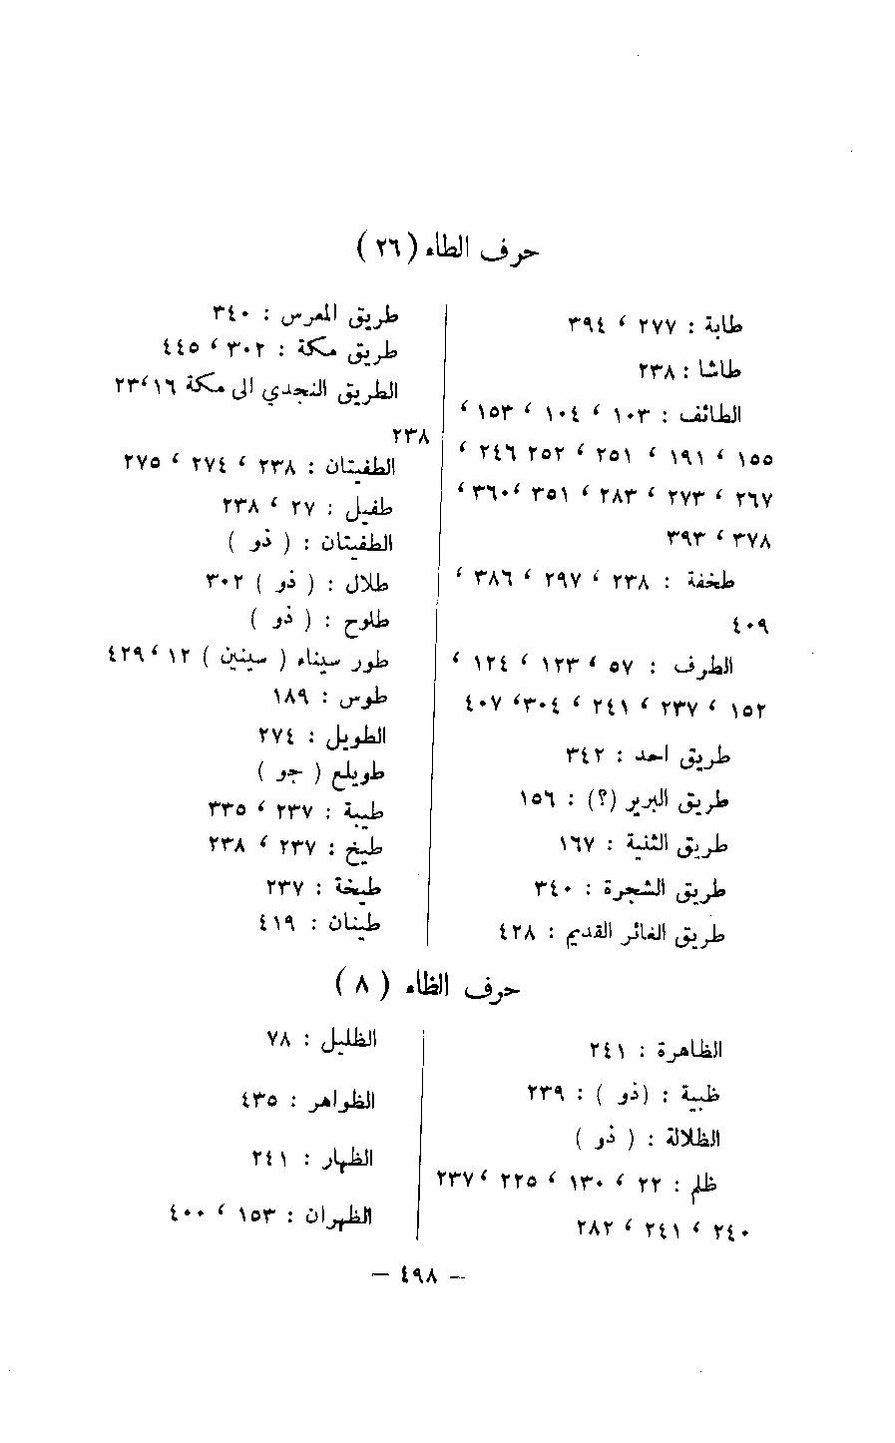 حرف الطاء ( ٢٦ )
طابة : ٢٧٧ ، ٣٩٤
طاشا : ٢٣٨
الطائف : ١٠٣ ، ١٠٤ ، ١٥٣ ،
١٥٥ ، ١٩١ ، ٢٥١ ، ٢٥٢ ٢٤٦ ،
٢٦٧ ، ٢٧٣ ، ٢٨٣ ، ٣٥١ ،٣٦٠ ،
٣٧٨ ، ٣٩٣
طخفة : ٢٣٨ ، ٢٩٧ ، ٣٨٦ ،
٤٠٩
الطرف : ٥٧ ، ١٢٣ ، ١٢٤ ،
١٥٢ ، ٢٣٧ ، ٢٤١ ، ٣٠٤، ٤٠٧
طريق احد : ٣٤٢
طريق البرير (؟) : ١٥٦
طريق الثنية : ١٦٧
طريق الشجرة : ٣٤٠
طريق الغائر القديم : ٤٢٨
طريق المعرس : ٣٤٠
طريق مكة : ٣٠٢ ، ٤٤٥
الطريق النجدي الى مكة ١٦،٢٣
٢٣٨
الطفيتان : ٢٣٨ ، ٢٧٤ ، ٢٧٥
طفيل : ٢٧ ، ٢٣٨
الطفيتان : ( ذو )
طلال : ( ذو ) ٣٠٢
طلوح : ( ذو )
طور سيناء ( سينين ) ١٢ ،٤٢٩
طوس : ١٨٩
الطويل : ٢٧٤
طويلع ( جو )
طيبة : ٢٣٧ ، ٣٣٥
طيخ : ٢٣٧ ، ٢٣٨
طيخة : ٢٣٧
طينان : ٤١٩
حرف الظاء ( ٨ )
الظاهرة : ٢٤١
ظبية : (ذو ) : ٢٣٩
الظلالة : ( ذو )
ظلم : ٢٢ ، ١٣٠ ، ٢٢٥ ،٢٣٧
٢٤٠ ، ٢٤١ ، ٢٨٢
الظليل : ٧٨
الظواهر : ٤٣٥
الظهار : ٢٤١
الظهران : ١٥٣ ، ٤٠٠
— ٤٩٨ —